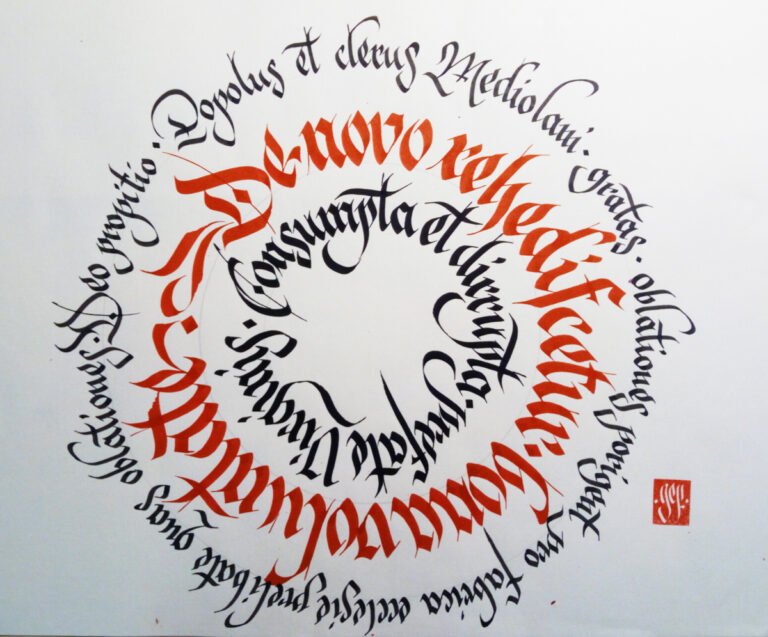 Popolus et clerus Mediolani. gratas. oblationes porigent pro fabrica ecclesie prelibate quas oblationes. Deo propitio.
De novo rehedifcetur. bona voluntate
Consumpta et dirrupta. prefate Virginis.